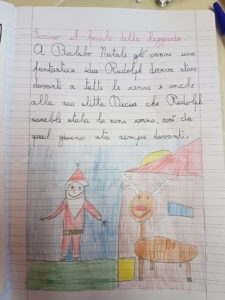 Scrivo il finale della leggenda.
A Babbo Natale gli venne una
fantastica idea Rudolph doveva stare
davanti a tutte le renne e anche
alla sua slitta Decise che Rudolph
sarebbe stata la nona renna, così da
quel giorno sta sempre davanti.